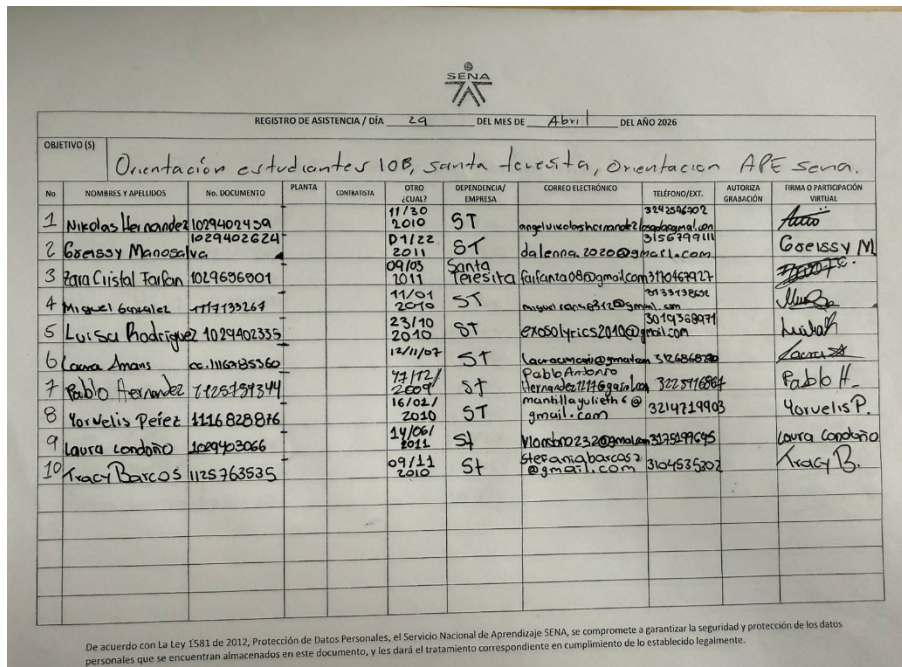 SENA
REGISTRO DE ASISTENCIA / DÍA 29 DEL MES DE Abril DEL AÑO 2026
OBJETIVO (S)
Orientación estudiantes 10B, santa teresita, Orientacion APE sena.
No NOMBRES Y APELLIDOS No. DOCUMENTO PLANTA CONTRATISTA OTRO ¿CUAL? DEPENDENCIA/ EMPRESA CORREO ELECTRÓNICO TELÉFONO/EXT. AUTORIZA GRABACIÓN FIRMA O PARTICIPACIÓN VIRTUAL
1 Nikolas Hernandez 1029402459 11/30 2010 ST
2 Greissy Manosalva 1029402624 01/22 2011 ST dalenna.2020@gmail.com 3156799111 Greissy M
3 Zara Cristal Farfan 1029696901 09/03 2011 Santa Teresita farfanza08@gmail.com 3170467927
4 Miguel Gonzalez 11/01 2010 ST
5 Luisa Rodriguez 1029402335 23/10 2010 St exosolyrics2010@gmail.com 3019368971
6 Laura Amaris 12/11/07 ST
7 Pablo Hernandez 17/12/ 2009 St 3225716867 Pablo H.
8 Yorvelis Perez 1116828876 16/02/ 2010 ST mantillayulieth6@ gmail.com 32147219903 Yorvelis P.
9 Laura Londoño 1029403066 14/06/ 2011 St Laura Londoño
10 Tracy Barcos 1125763535 09/11 2010 St stefaniabarcos2 @gmail.com 3104535302 Tracy B.
De acuerdo con La Ley 1581 de 2012, Protección de Datos Personales, el Servicio Nacional de Aprendizaje SENA, se compromete a garantizar la seguridad y protección de los datos
personales que se encuentran almacenados en este documento, y les dará el tratamiento correspondiente en cumplimiento de lo establecido legalmente.